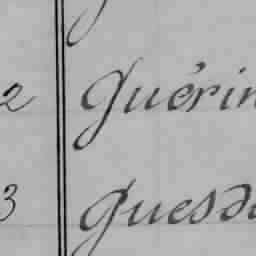 2 Guérin
3 Guesd